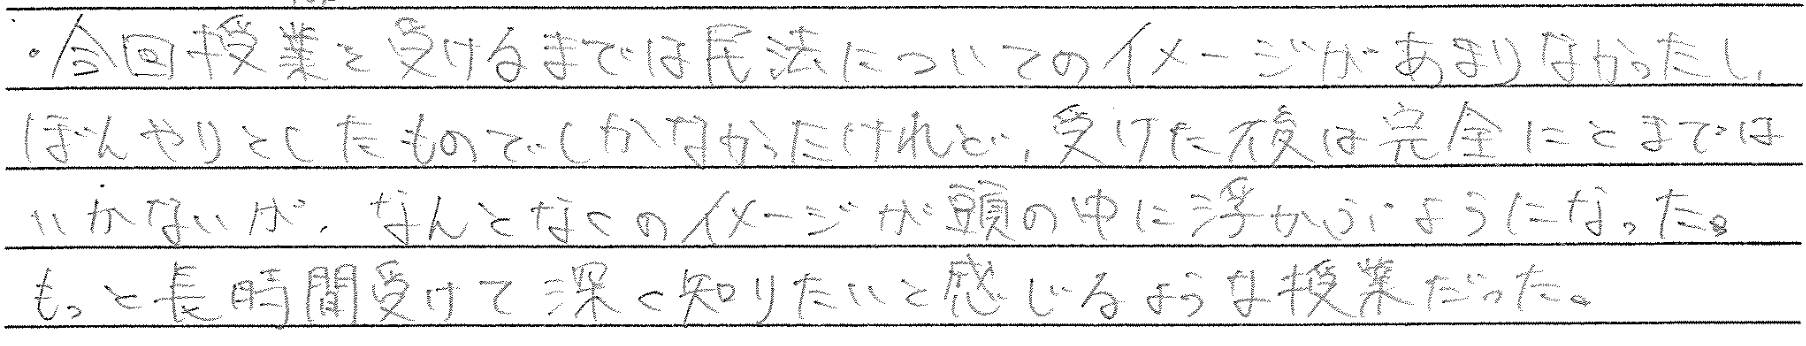 ・今回授業を受けるまでは民法についてのイメージがあまりなかったし、
ぼんやりとしたものでしかなかったけれど、受けた後は完全にとまでは
いかないが、なんとなくのイメージが頭の中に浮かぶようになった。
もっと長時間受けて深く知りたいと感じるような授業だった。